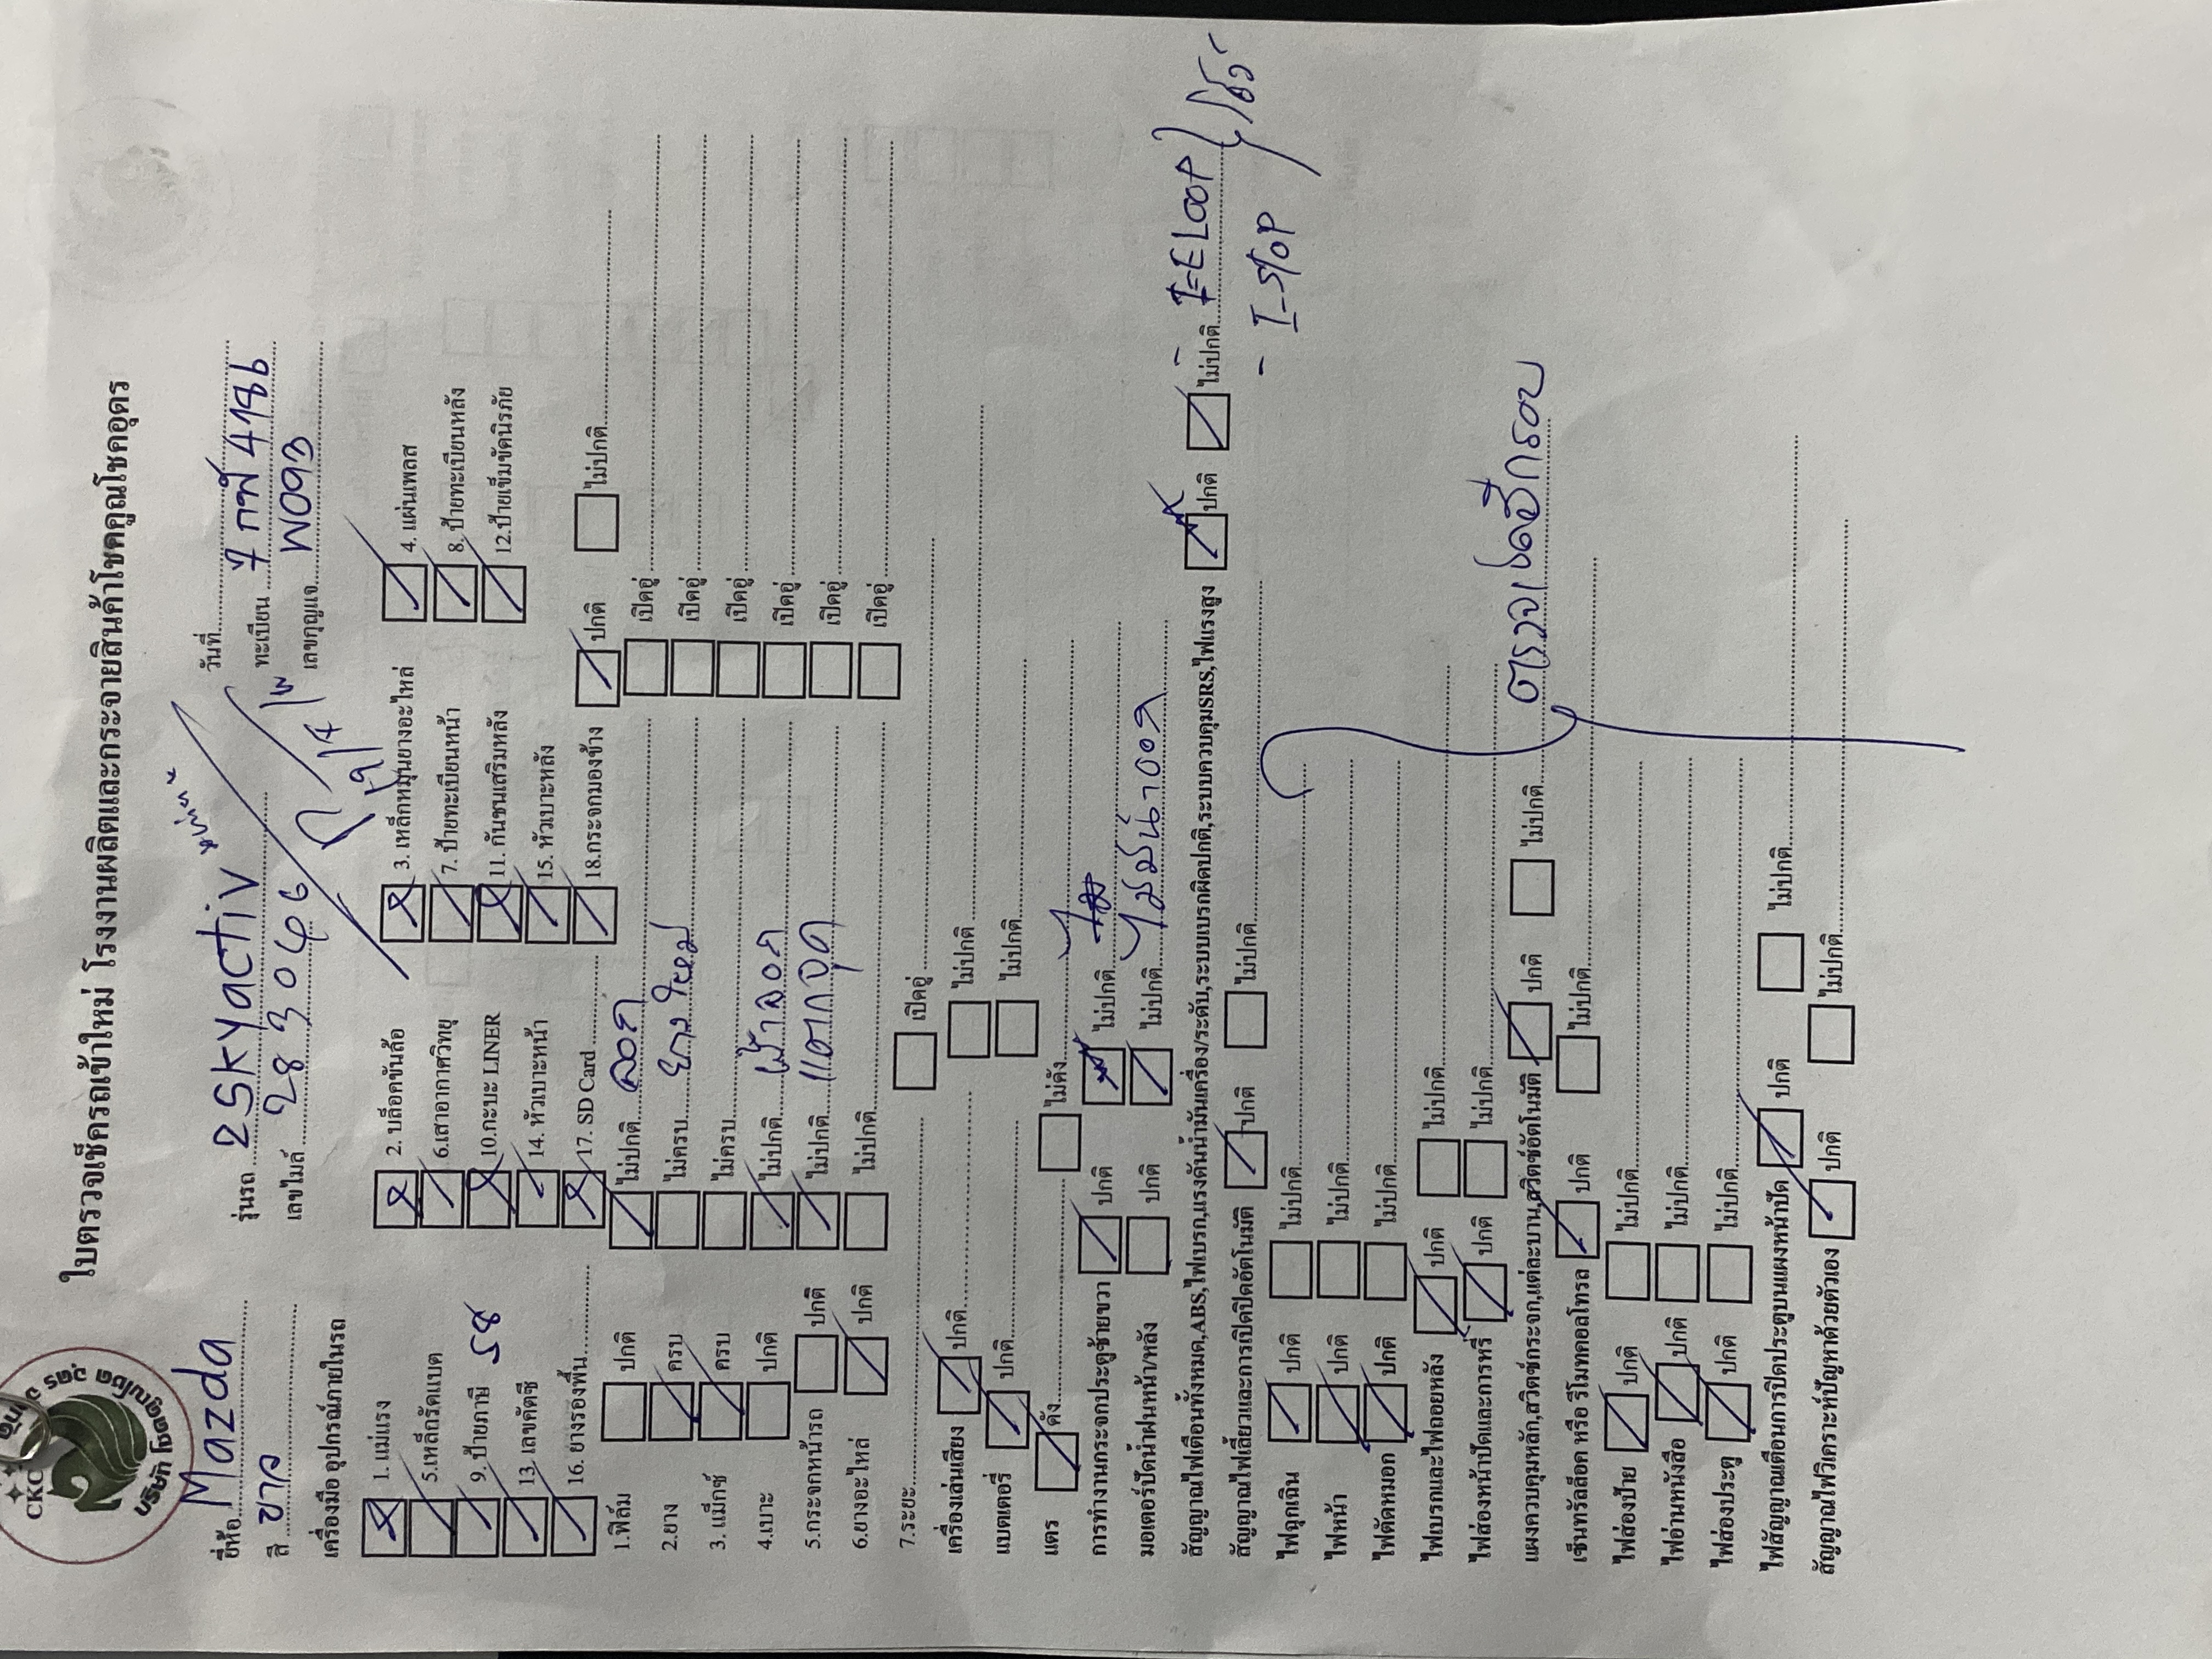 CKC
บริษัท โชคคูณโชค อุดร จำกัด
ใบตรวจเช็ครถเข้าใหม่ โรงงานผลิตและกระจายสินค้าโชคคูณโชคอุดร
ยี่ห้อ Mazda รุ่นรถ 2 SKYactiv วันที่
สี ขาว เลขไมล์ 283066 ทะเบียน 7 กฬ 4986
เลขกุญแจ W093
เครื่องมือ อุปกรณ์ภายในรถ
1. แม่แรง 2. บล็อคขันล้อ 3. เหล็กหมุนยางอะไหล่ 4. แผ่นเพลส
5.เหล็กรัดแบต 6.เสาอากาศวิทยุ 7. ป้ายทะเบียนหน้า 8. ป้ายทะเบียนหลัง
9. ป้ายภาษี 58 10.กะบะ LINER 11. กันชนเสริมหลัง 12.ป้ายเข็มขัดนิรภัย
13. เลขคัตซี 14. หัวเบาะหน้า 15. หัวเบาะหลัง
16. ยางรองพื้น 17. SD Card 18.กระจกมองข้าง ปกติ ไม่ปกติ
1.ฟิล์ม ปกติ ไม่ปกติ ลอก เปิดอู่
2.ยาง ครบ ไม่ครบ ยางใหม่ เปิดอู่
3. แม็กซ์ ครบ ไม่ครบ เปิดอู่
4.เบาะ ปกติ ไม่ปกติ เบ้าลอก เปิดอู่
5.กระจกหน้ารถ ปกติ ไม่ปกติ แตกจุด เปิดอู่
6.ยางอะไหล่ ปกติ ไม่ปกติ เปิดอู่
7.ระยะ เปิดอู่
เครื่องเล่นเสียง ปกติ ไม่ปกติ
แบตเตอรี่ ปกติ ไม่ปกติ
แตร ดัง ไม่ดัง
การทำงานกระจกประตูซ้ายขวา ปกติ ไม่ปกติ
มอเตอร์ปัดน้ำฝนหน้า/หลัง ปกติ ไม่ปกติ ไม่มีน้ำออก
สัญญาณไฟเตือนทั้งหมด,ABS,ไฟเบรก,แรงดันน้ำมันเครื่อง/ระดับ,ระบบเบรกผิดปกติ,ระบบควบคุมSRS,ไฟแรงสูง ปกติ ไม่ปกติ - I-ELOOP
- I-STOP
สัญญาณไฟเลี้ยวและการเปิดปิดอัตโนมัติ ปกติ ไม่ปกติ
ไฟฉุกเฉิน ปกติ ไม่ปกติ
ไฟหน้า ปกติ ไม่ปกติ
ไฟตัดหมอก ปกติ ไม่ปกติ
ไฟเบรกและไฟถอยหลัง ปกติ ไม่ปกติ
ไฟส่องหน้าปัดและการหรี่ ปกติ ไม่ปกติ
แผงควบคุมหลัก,สวิตช์กระจก,แต่ละบาน,สวิตซ์อัตโนมัติ ปกติ ไม่ปกติ ตรวจเช็คอีกรอบ
เซ็นทรัลล็อค หรือ รีโมทคอลโทรล ปกติ ไม่ปกติ
ไฟส่องป้าย ปกติ ไม่ปกติ
ไฟอ่านหนังสือ ปกติ ไม่ปกติ
ไฟส่องประตู ปกติ ไม่ปกติ
ไฟสัญญาณเตือนการปิดประตูบนแผงหน้าปัด ปกติ ไม่ปกติ
สัญญาณไฟวิเคราะห์ปัญหาด้วยตัวเอง ปกติ ไม่ปกติ